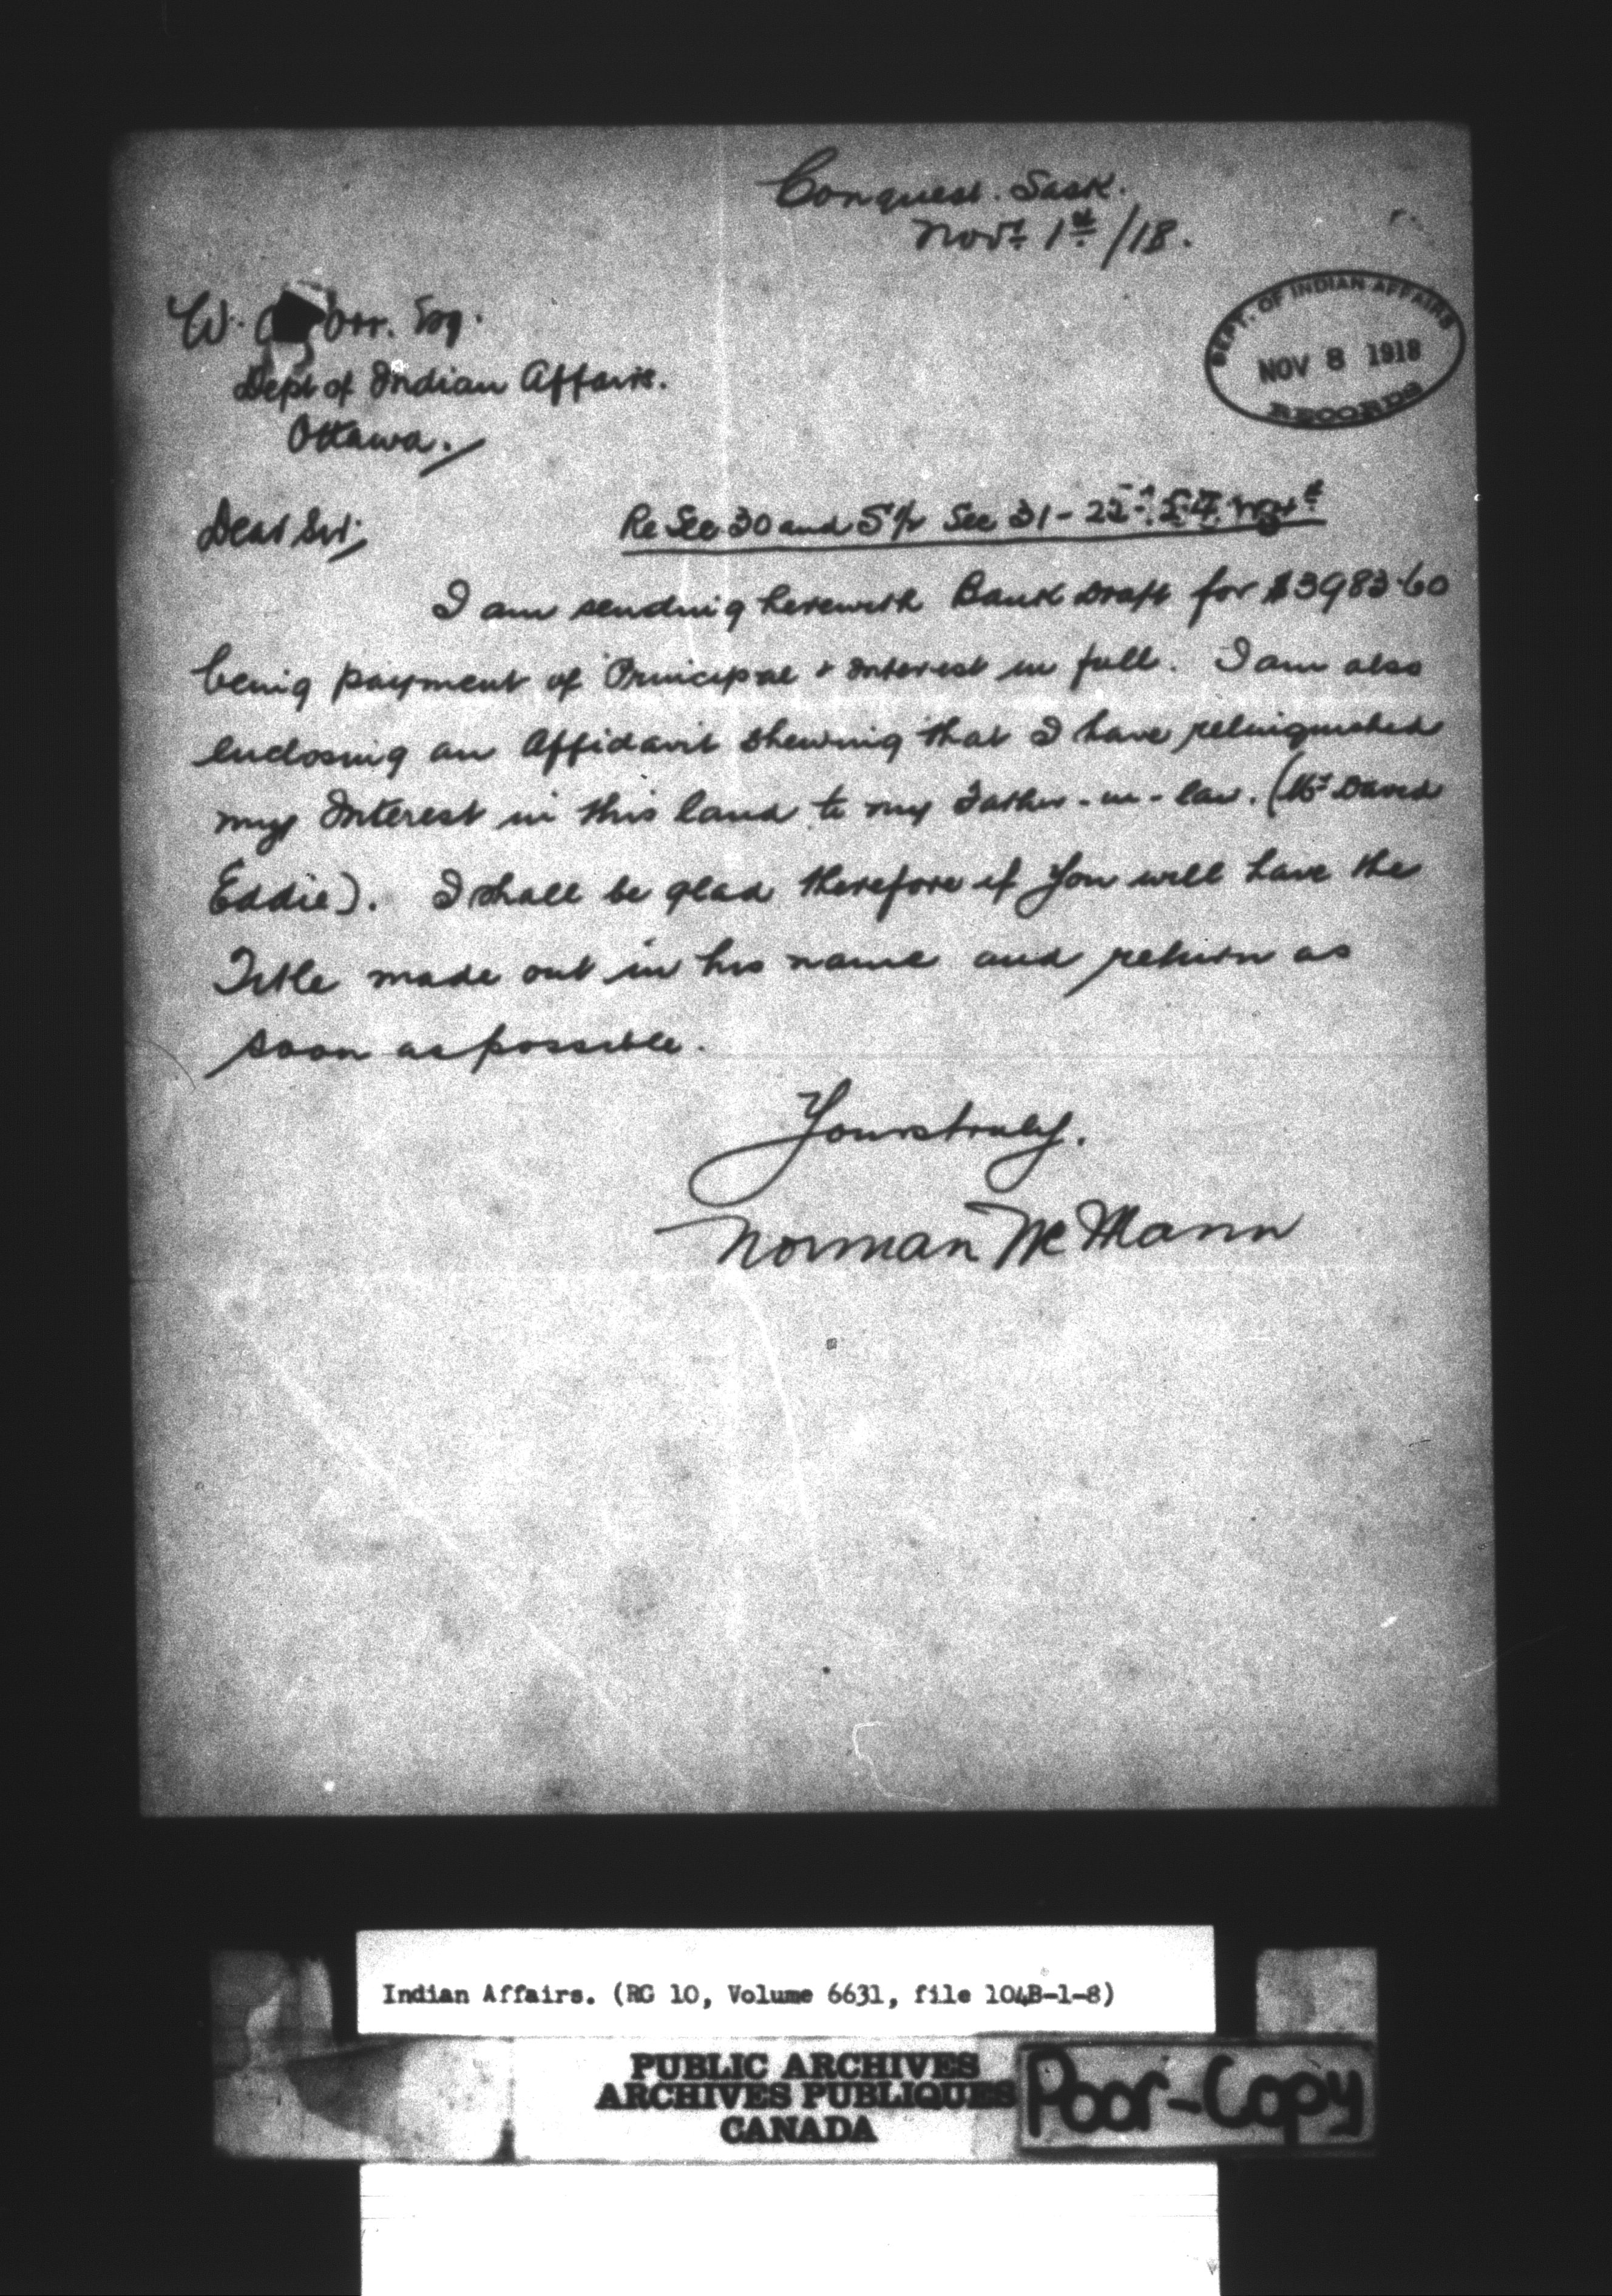 Conquest. Sask.
Novr 1st/18.
W. Orr. Esq.
Dept of Indian Affairs.
Ottawa.
DEPT. OF INDIAN AFFAIRS
NOV 8 1918
RECORDS
Dear Sir,
Re Sec 30 and S½ Sec 31-22-
I am sending herewith Bank Draft for $3983.60
being payment of Principal & Interest in full. I am also
enclosing an Affidavit shewing that I have relinquished
my Interest in this land to my Father-in-law. (Mr David
Eddie). I shall be glad therefore if you will have the
Title made out in his name and return as
soon as possible.
Yours truly.
Norman McMann
Indian Affairs. (RG 10, Volume 6631, file 104B-1-8)
PUBLIC ARCHIVES
ARCHIVES PUBLIQUES
CANADA
Poor-Copy